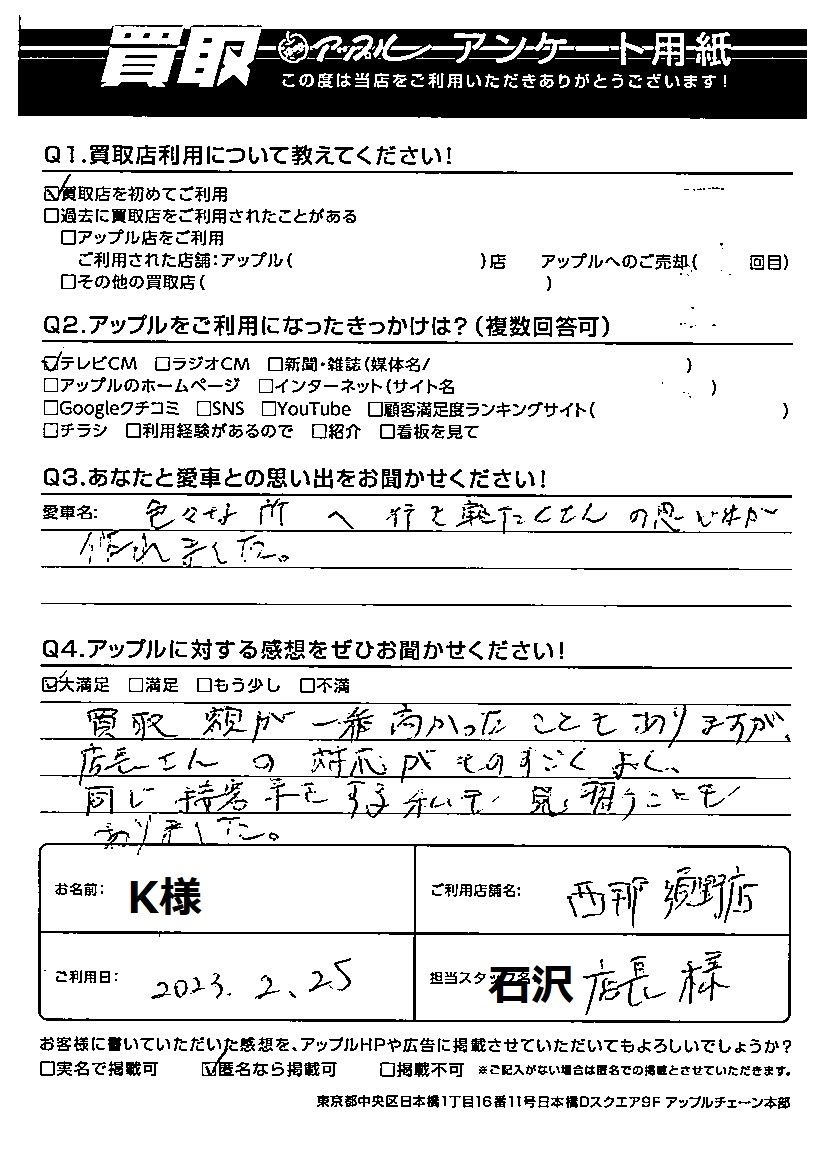 買取 アップル アンケート用紙
この度は当店をご利用いただきありがとうございます!
Q1.買取店利用について教えてください!
☑買取店を初めてご利用
□過去に買取店をご利用されたことがある
□アップル店をご利用
ご利用された店舗:アップル( )店 アップルへのご売却( 回目)
□その他の買取店( )
Q2.アップルをご利用になったきっかけは?(複数回答可)
☑テレビCM □ラジオCM □新聞・雑誌(媒体名/ )
□アップルのホームページ □インターネット(サイト名 )
□Googleクチコミ □SNS □YouTube □顧客満足度ランキングサイト( )
□チラシ □利用経験があるので □紹介 □看板を見て
Q3.あなたと愛車との思い出をお聞かせください!
愛車名: 色々な所へ行きたくさんの思い出が
作れました。
Q4.アップルに対する感想をぜひお聞かせください!
☑大満足 □満足 □もう少し □不満
買取額が一番高かったこともありますが、
店長さんの対応がものすごくよく、
同じ接客業をする私も見習うことも
ありました。
お名前: K様 ご利用店舗名: 西那須野店
ご利用日: 2023.2.25 担当スタッフ名 石沢店長様
お客様に書いていただいた感想を、アップルHPや広告に掲載させていただいてもよろしいでしょうか?
□実名で掲載可 ☑匿名なら掲載可 □掲載不可 ※ご記入がない場合は匿名での掲載とさせていただきます。
東京都中央区日本橋1丁目16番11号日本橋Dスクエア9F アップルチェーン本部